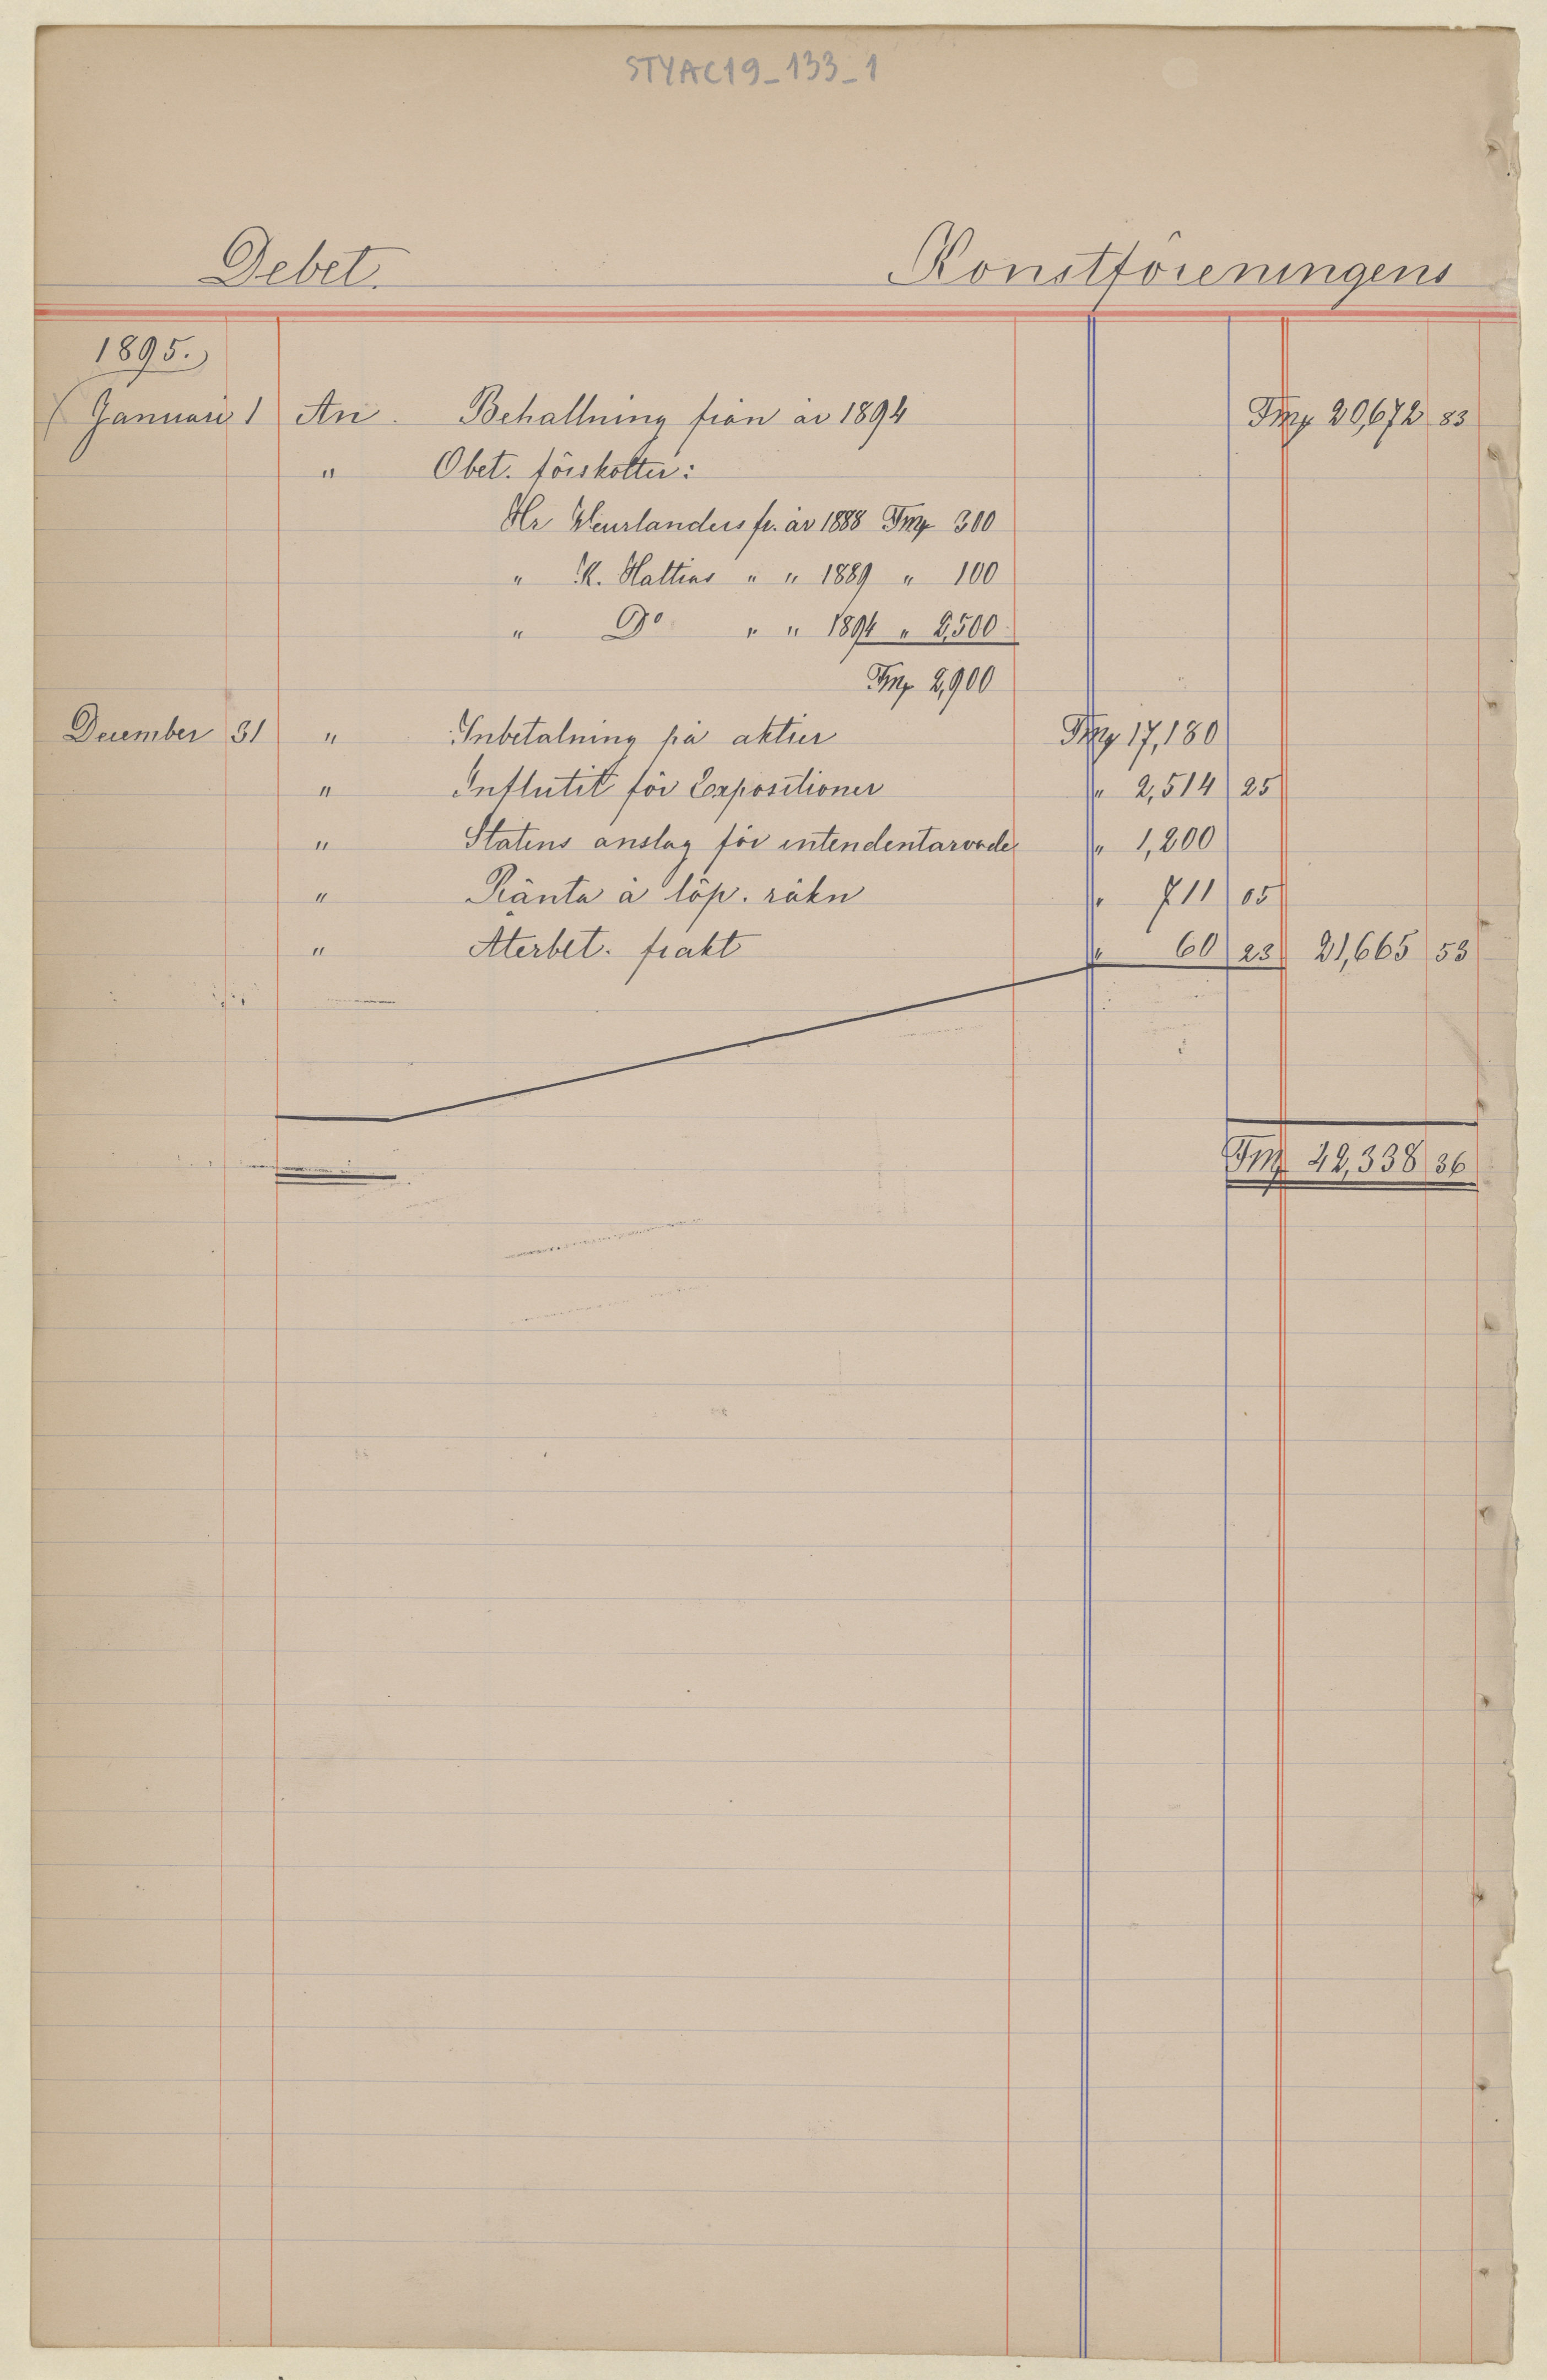 STYAC19_133_1
Debet. Konstföreningens
1895.
Januari 1 An Behållning från år 1894 Fmk 20,672 83
" Obet. förskotter:
Hr fr. år 1888 Fmk 300
" K. " " 1889 " 100
" Do " " 1894 " 2,500
Fmk 2,900
December 31 " Inbetalning på aktier Fmk 17,180
" Influtit för Expositioner " 2,514 25
" Statens anslag för intendentarvode " 1,200
" Ränta à löp. räkn " 711 05
" Återbet. frakt " 60 23 21,665 53
Fmk 42,338 36